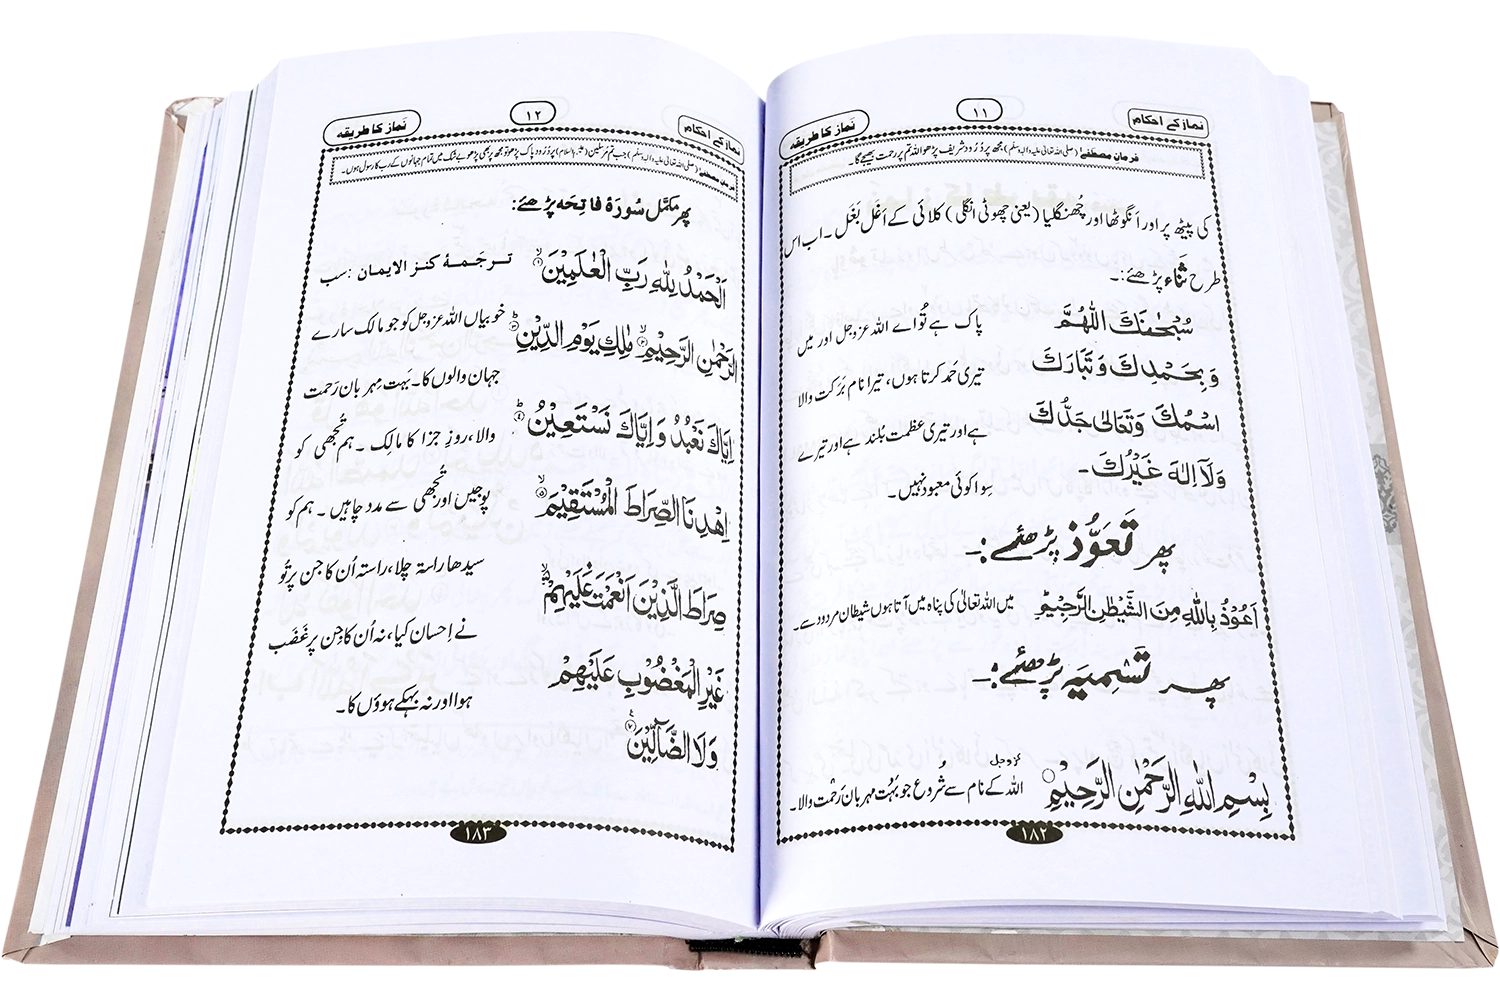 نماز کے احکام
۱۱
نماز کا طریقہ
فرمانِ مصطفےٰ (صلی اللہ تعالیٰ علیہ والہ وسلم) مجھ پر دُرُود شریف پڑھو اللہ تم پر رحمت بھیجے گا۔
کی پیٹھ پر اور اَنگوٹھا اور چُھنگلیا (یعنی چھوٹی انگلی) کلائی کے اَغَل بَغَل۔ اب اس
طرح ثَناء پڑھئے:۔
سُبْحٰنَكَ اللّٰهُمَّ
پاک ہے تُو اے اللہ عزوجل اور میں
وَبِحَمْدِكَ وَتَبَارَكَ
تیری حَمد کرتا ہوں، تیرا نام بَرَکت والا
اسْمُكَ وَتَعَالٰى جَدُّكَ
ہے اور تیری عظمت بُلند ہے اور تیرے
وَلَآ اِلٰهَ غَيْرُكَ۔
سِوا کوئی معبود نہیں۔
پھر تَعَوُّذ پڑھئے:۔
اَعُوْذُ بِاللّٰهِ مِنَ الشَّيْطٰنِ الرَّجِيْمِ
میں اللہ تعالیٰ کی پناہ میں آتا ہوں شیطان مردود سے۔
پھر تَسْمِیَہ پڑھئے:۔
بِسْمِ اللّٰهِ الرَّحْمٰنِ الرَّحِيْمِ
عزوجل
اللہ کے نام سے شروع جو بَہُت مہربان رَحمت والا۔
۱۸۲
نماز کے احکام
۱۲
نماز کا طریقہ
فرمانِ مصطفےٰ (صلی اللہ تعالیٰ علیہ والہ وسلم) جب تم مُرسلین (علیہم السلام) پر دُرُود پاک پڑھو تو مجھ پر بھی پڑھو بے شک میں تمام جہانوں کے رب کا رسول ہوں۔
پھر مکمَّل سُورَۂ فاتِحَہ پڑھئے:
اَلْحَمْدُ لِلّٰهِ رَبِّ الْعٰلَمِيْنَ ۙ﴿۱﴾
ترجَمۂ کنز الایمان: سب
الرَّحْمٰنِ الرَّحِيْمِ ۙ﴿۲﴾ مٰلِكِ يَوْمِ الدِّيْنِ ؕ﴿۳﴾
خوبیاں اللہ عزوجل کو جو مالک سارے
جہان والوں کا۔ بَہُت مِہربان رَحمت
اِيَّاكَ نَعْبُدُ وَاِيَّاكَ نَسْتَعِيْنُ ؕ﴿۴﴾
والا، روزِ جزا کا مالِک۔ ہم تُجھی کو
اِهْدِنَا الصِّرَاطَ الْمُسْتَقِيْمَ ۙ﴿۵﴾
پوجیں اور تُجھی سے مدد چاہیں۔ ہم کو
صِرَاطَ الَّذِيْنَ اَنْعَمْتَ عَلَيْهِمْ ۙ﴿۶﴾
سیدھا راستہ چلا، راستہ اُن کا جن پر تُو
غَيْرِ الْمَغْضُوْبِ عَلَيْهِمْ
نے اِحسان کیا، نہ اُن کا جِن پر غَضَب
وَلَا الضَّآلِّيْنَ ﴿۷﴾
ہوا اور نہ بہکے ہوؤں کا۔
۱۸۳